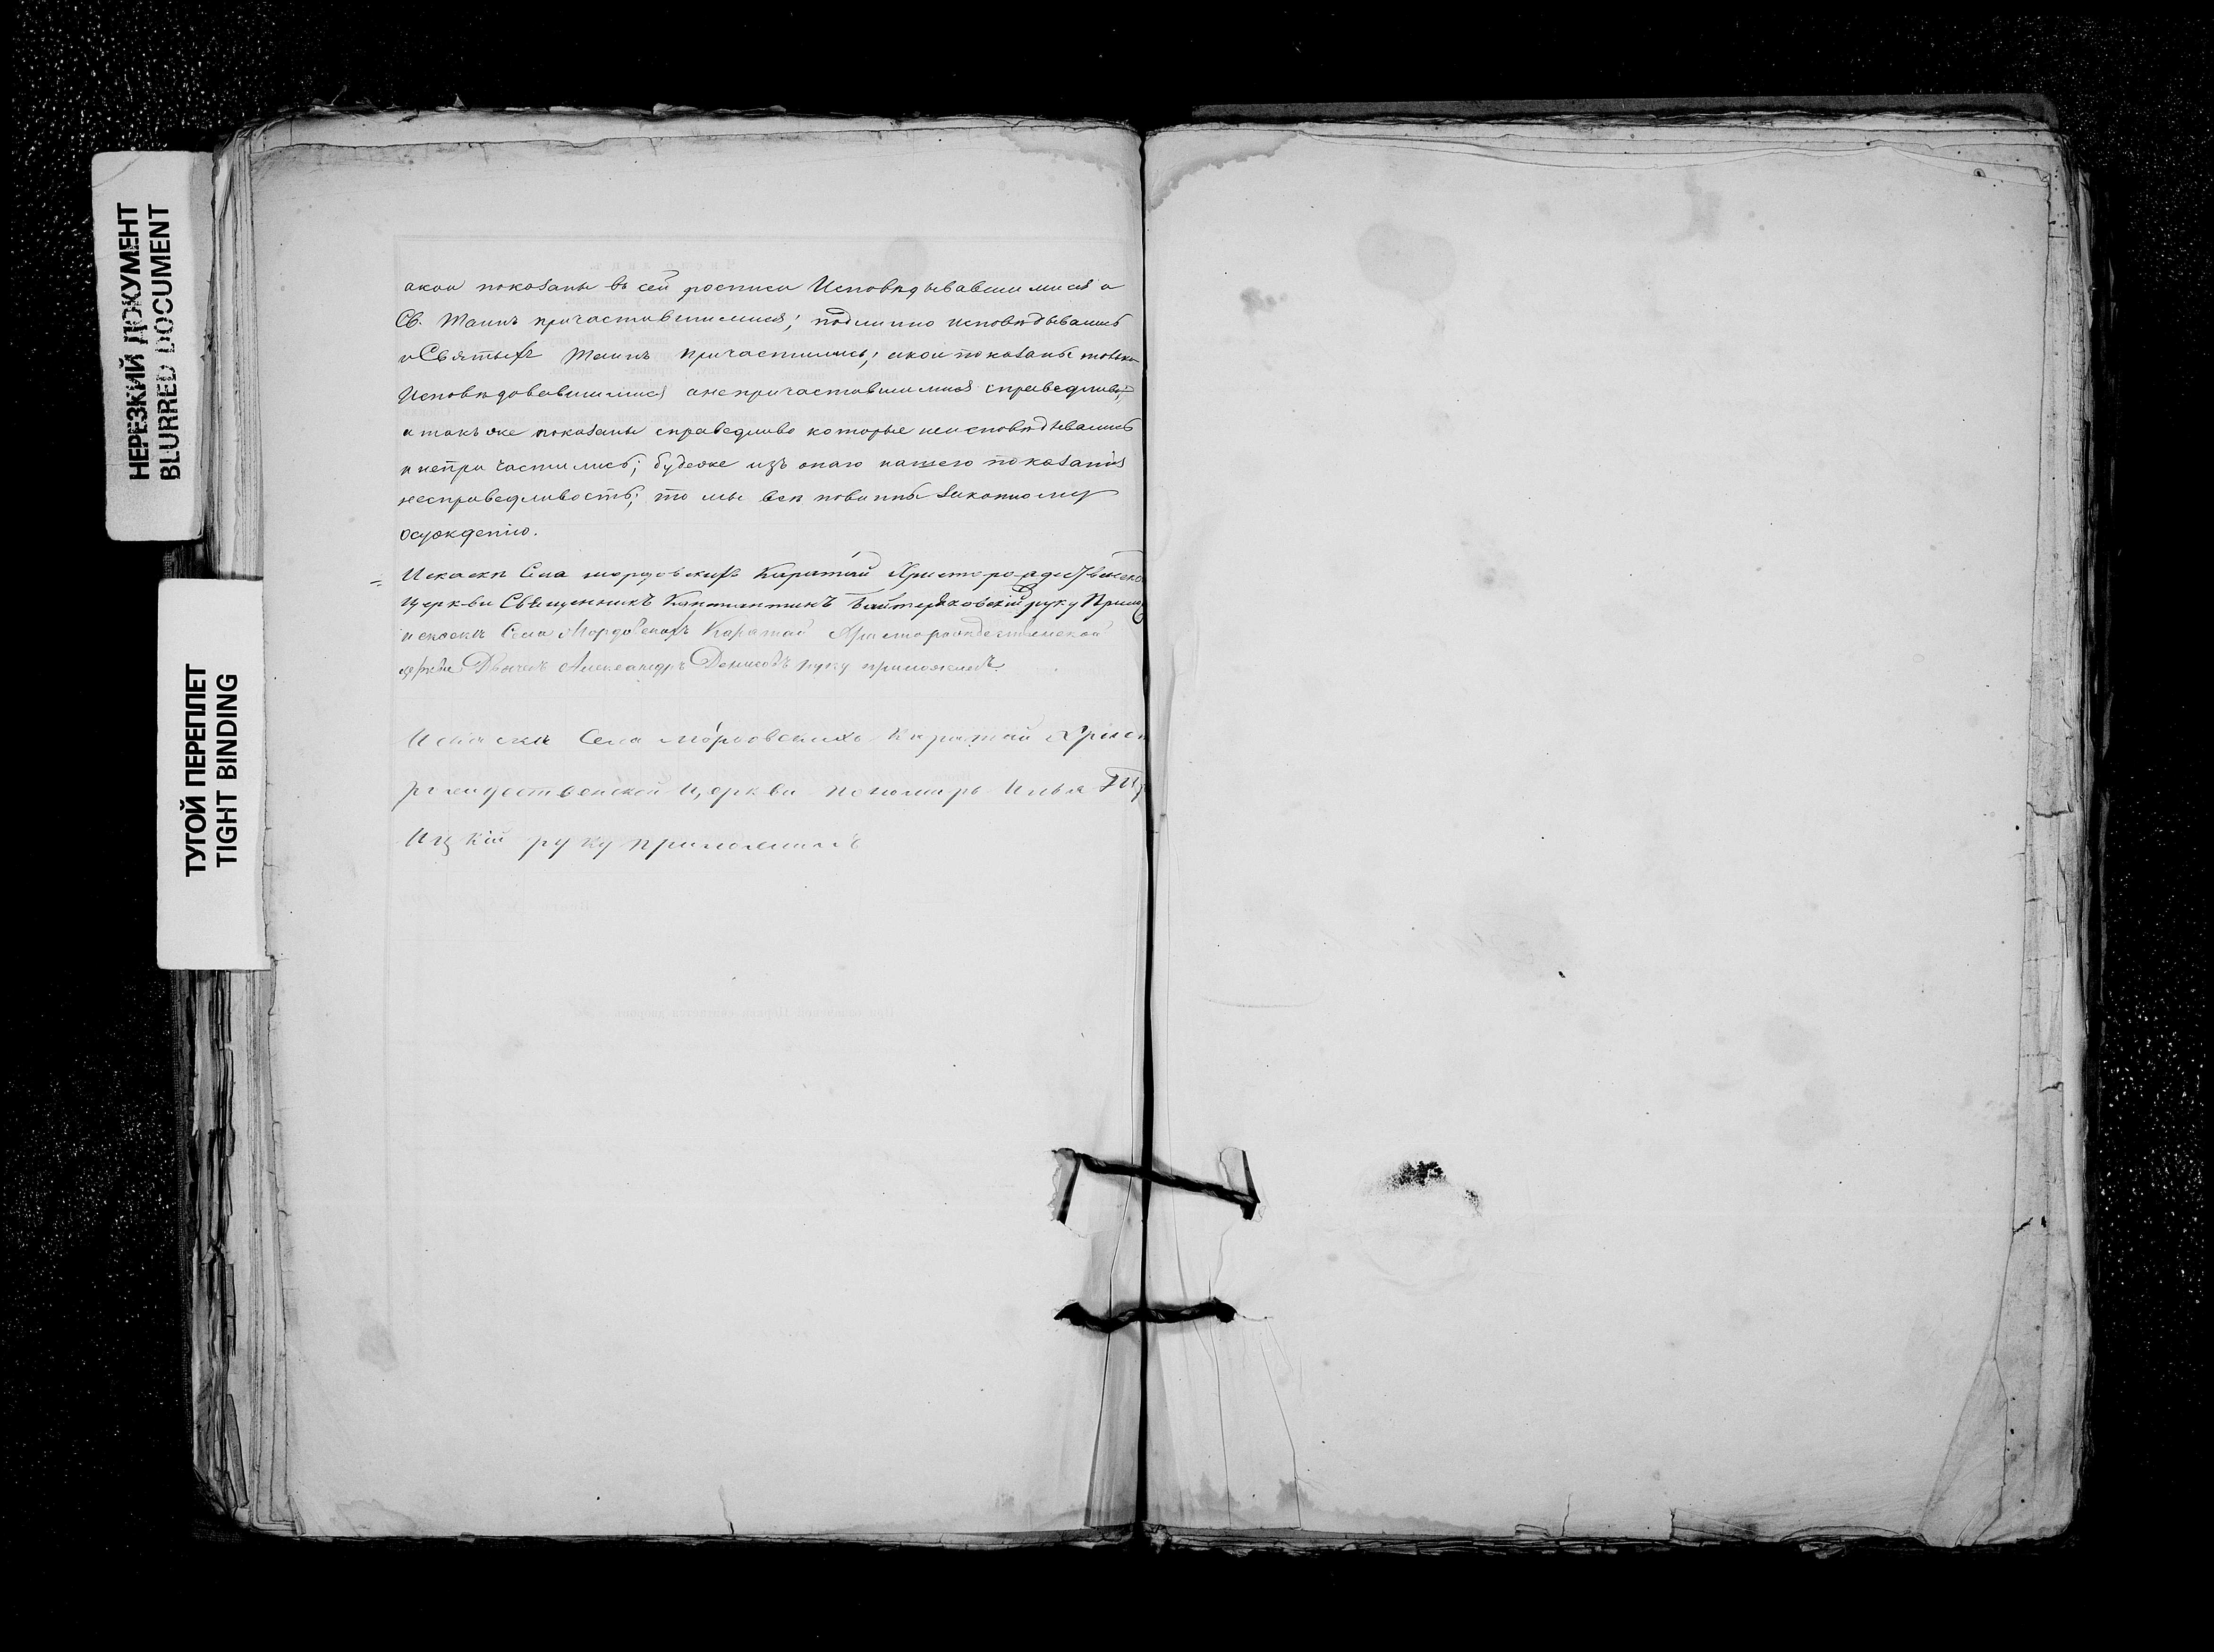 НЕРЕЗКИЙ ДОКУМЕНТ
BLURRED DOCUMENT
ТУГОЙ ПЕРЕПЛЕТ
TIGHT BINDING
акои показаны въ сей росписи Исповѣдывавшимися и
Св. Таинъ причастившимися; подлинно исповѣдывались
и Святыхъ Таинъ причастились; акои показаны только
Исповѣдовавшимися анепричастившимися справедливо;
а такъ же показаны справедливо которые неисповѣдывались
и непричастились; будеже изъ онаго нашего показанія
несправедливость; то мы всѣ повинны законному
осужденію.
Искаскѣ Села мордовскихъ Каратай Христорождественско
Церкви Священникъ Константинъ Байтеряковскій руку Прило
искаскѣ Села Мордовскихъ Каратай Христорождественской
церкви Дьячекъ Александръ Денисовъ руку приложилъ.
Искаскѣ Села Мордовскихъ Каратай Хрис
рождественской Церкви пономарь Илья
ицкій руку приложилъ